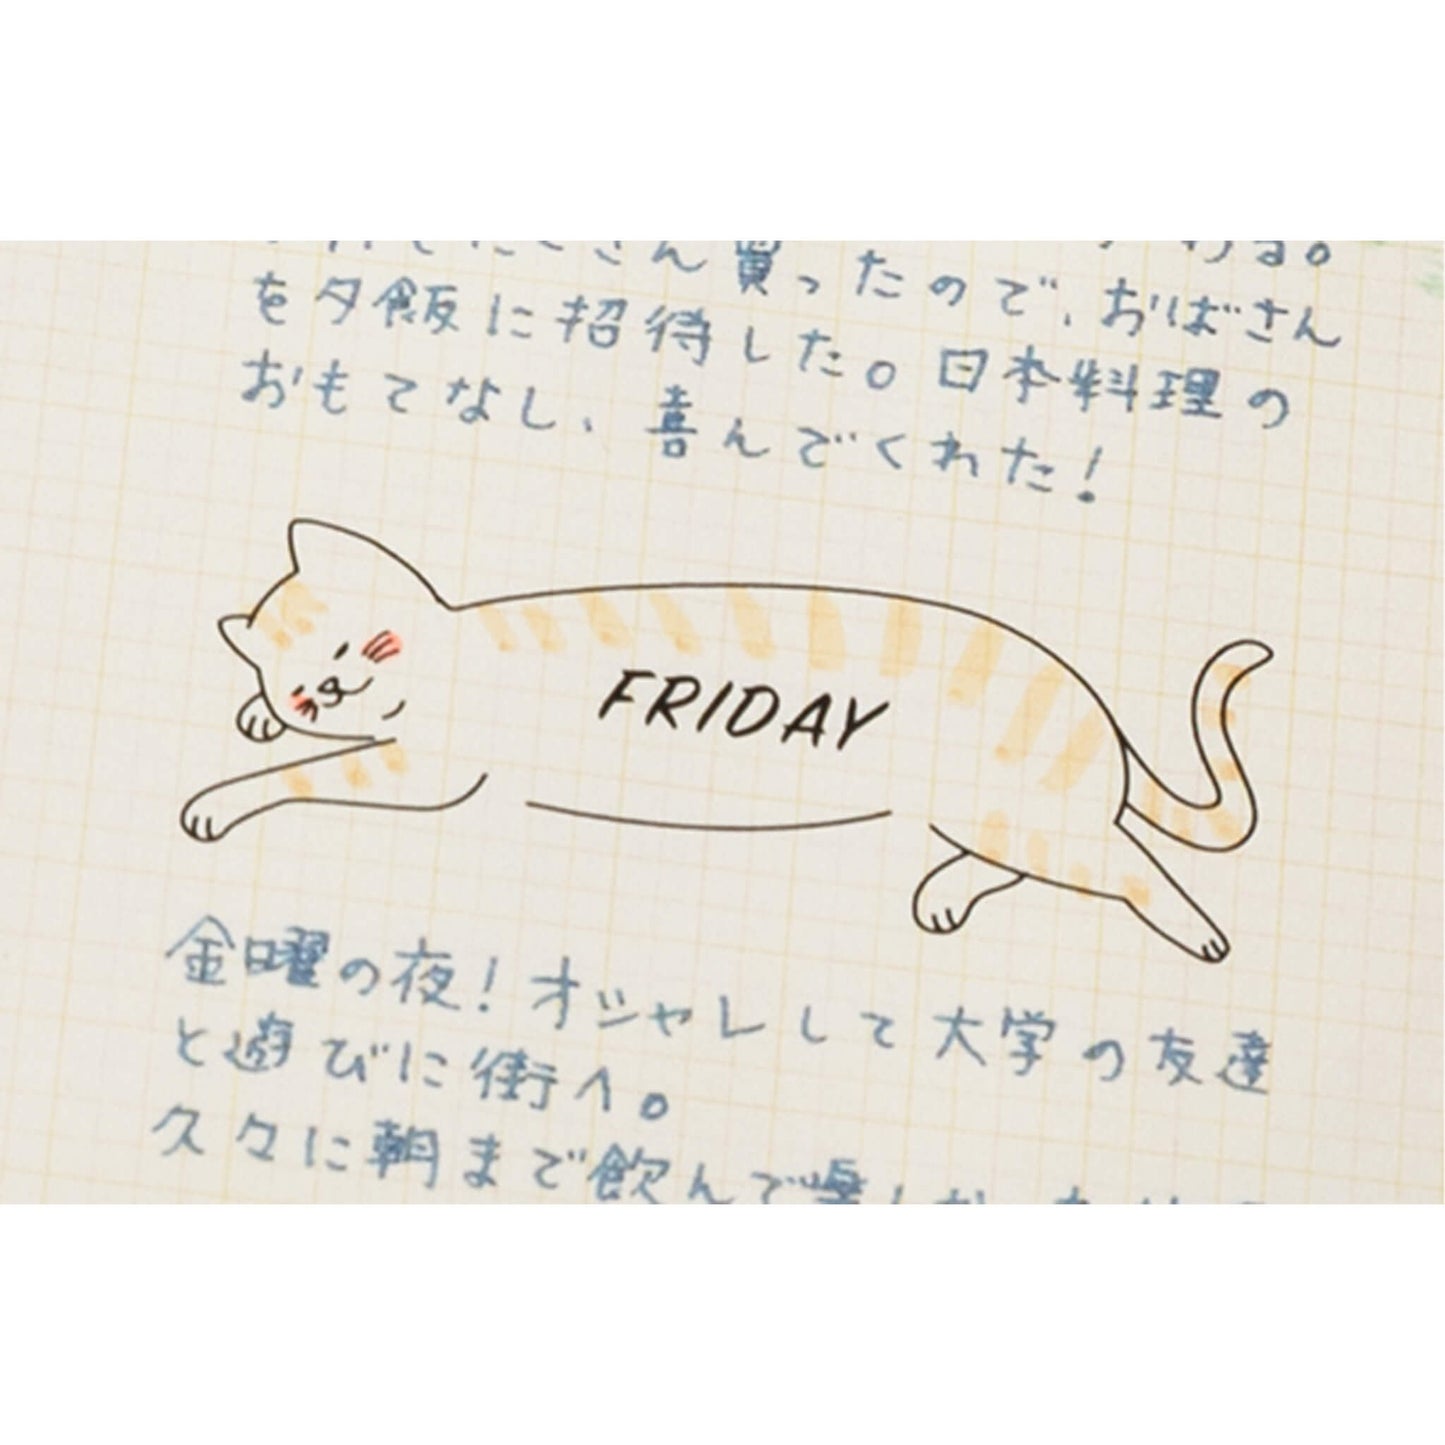 さん買ったので、おばさん
を夕飯に招待した。日本料理の
おもてなし、喜んでくれた!
FRIDAY
金曜の夜!オシャレして大学の友達
と遊びに街へ。
久々に朝まで飲んで楽し